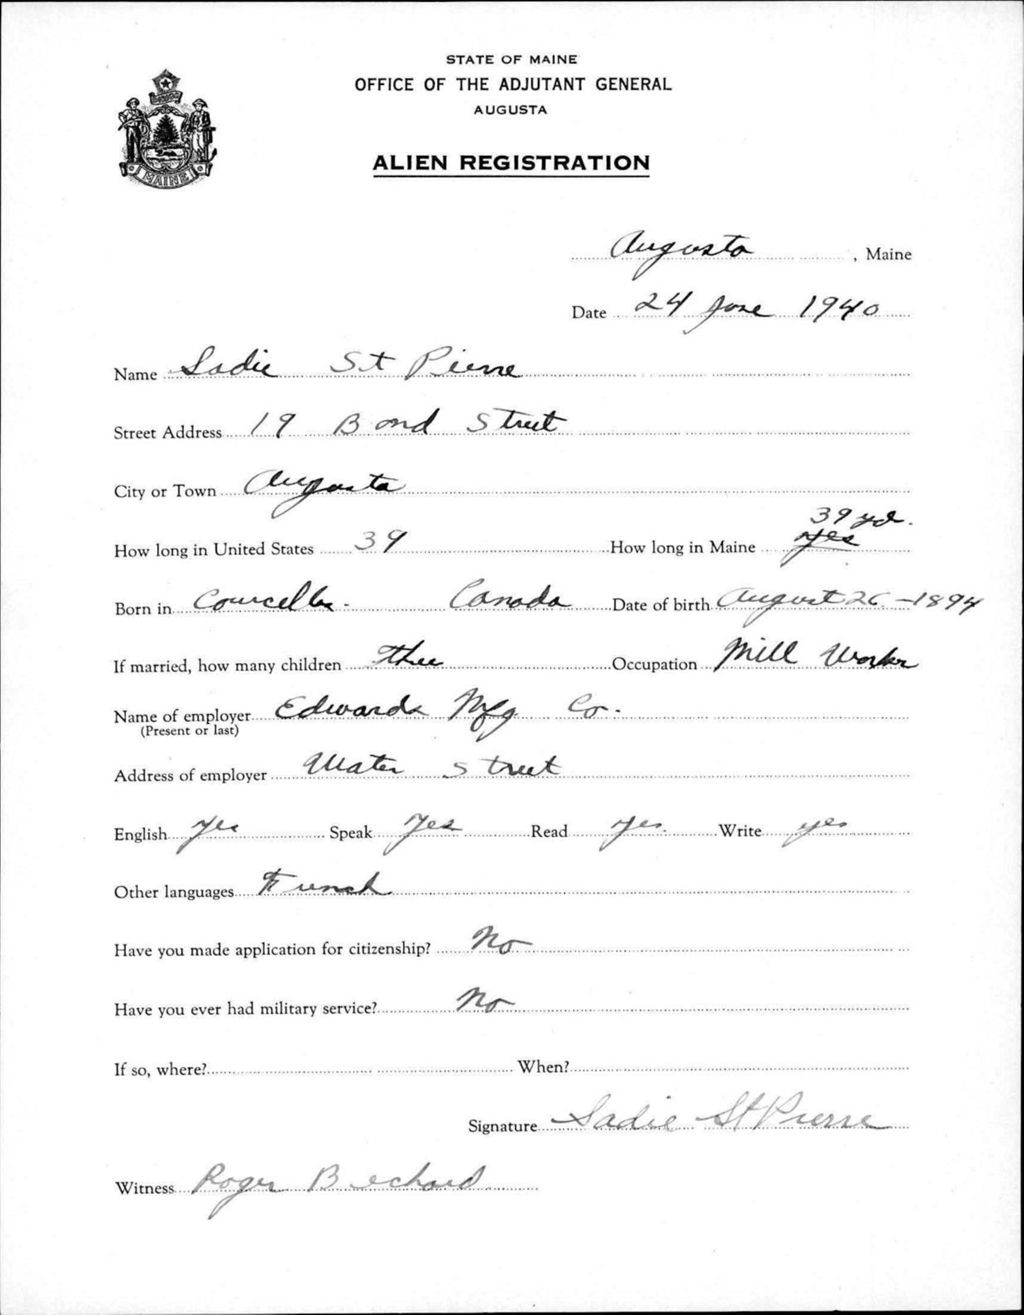 STATE OF MAINE
OFFICE OF THE ADJUTANT GENERAL
AUGUSTA
ALIEN REGISTRATION
MAINE
Augusta, Maine
Date 24 June 1940
Name Sadie St Pierre
Street Address 19 Bond Street
City or Town Augusta
39
How long in United States 39 How long in Maine yes
Born in Canada Date of birth August 26 - 1894
If married, how many children three Occupation Mill Worker
Name of employer Edwards Mfg Co.
(Present or last)
Address of employer Water Street
English yes Speak Yes Read yes. Write yes
Other languages French
Have you made application for citizenship? No
Have you ever had military service? No
If so, where? When?
Signature Sadie St Pierre
Witness Roger Bechard